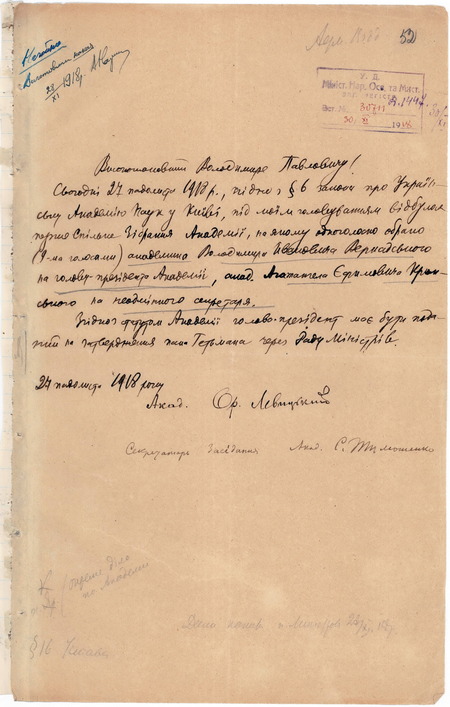 52
28/XI 1918 р.
У. Д.
Мініст. Нар. Осв. та Мист.
Вст. №
30/XI 1918
Високоповажний Володимире Павловичу!
Сьогодні 27 падолиста 1918 р., згідно з § 6 закону про Україн-
ську Академію Наук у Київі, під моїм головуванням відбулося
перше Спільне Зібрання Академії, на якому одноголосно обрано
академика Володимира Івановича Вернадського
на голову-президента Академії, акад. Агатангела Ефимовича Крим-
ського на неодмінного секретаря.
Згідно статуту Академії голова-президент має бути пода-
ний на затвердження пана Гетьмана через Раду Міністрів.
27 падолиста 1918 року
Акад. Ор. Левицький
Секретарь засідання Акад. С. Тимошенко
§ 16